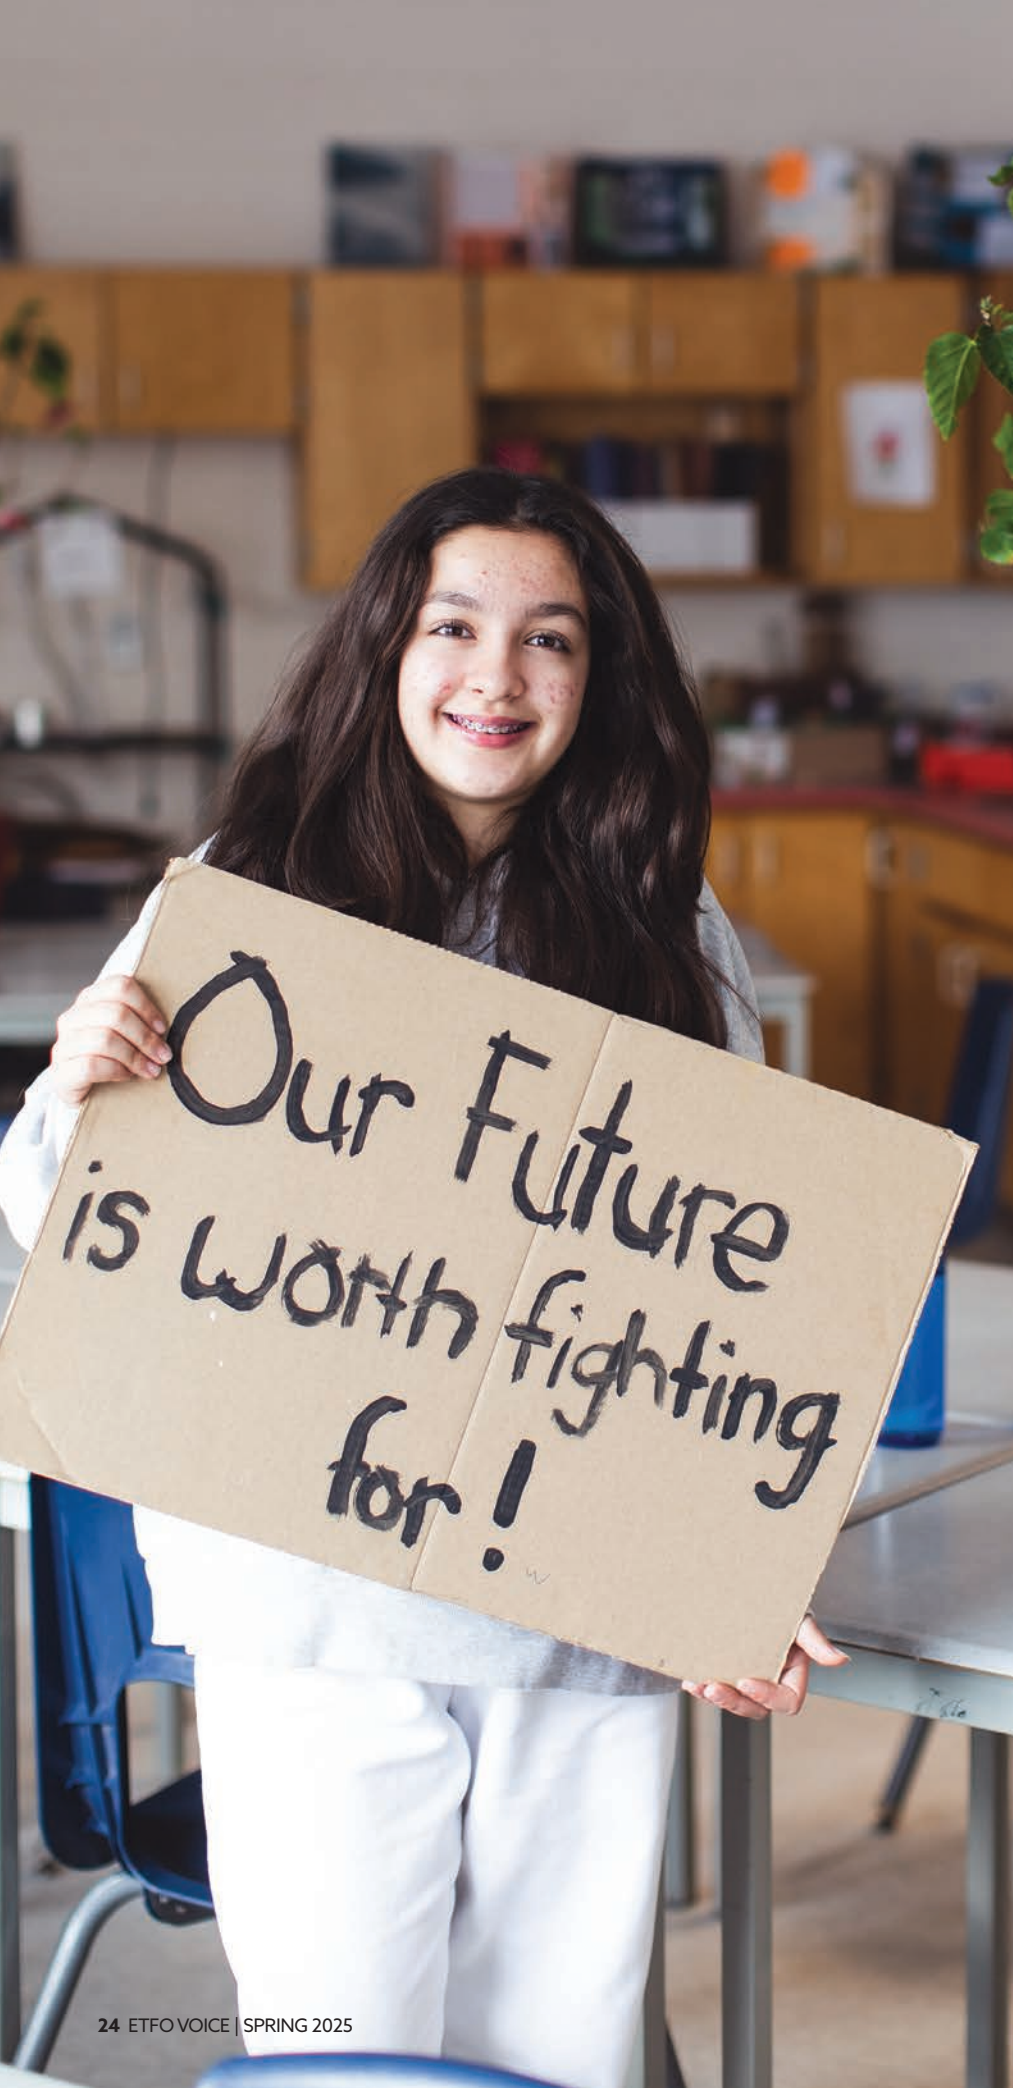 Our Future
is worth fighting
for!
24 ETFO VOICE | SPRING 2025